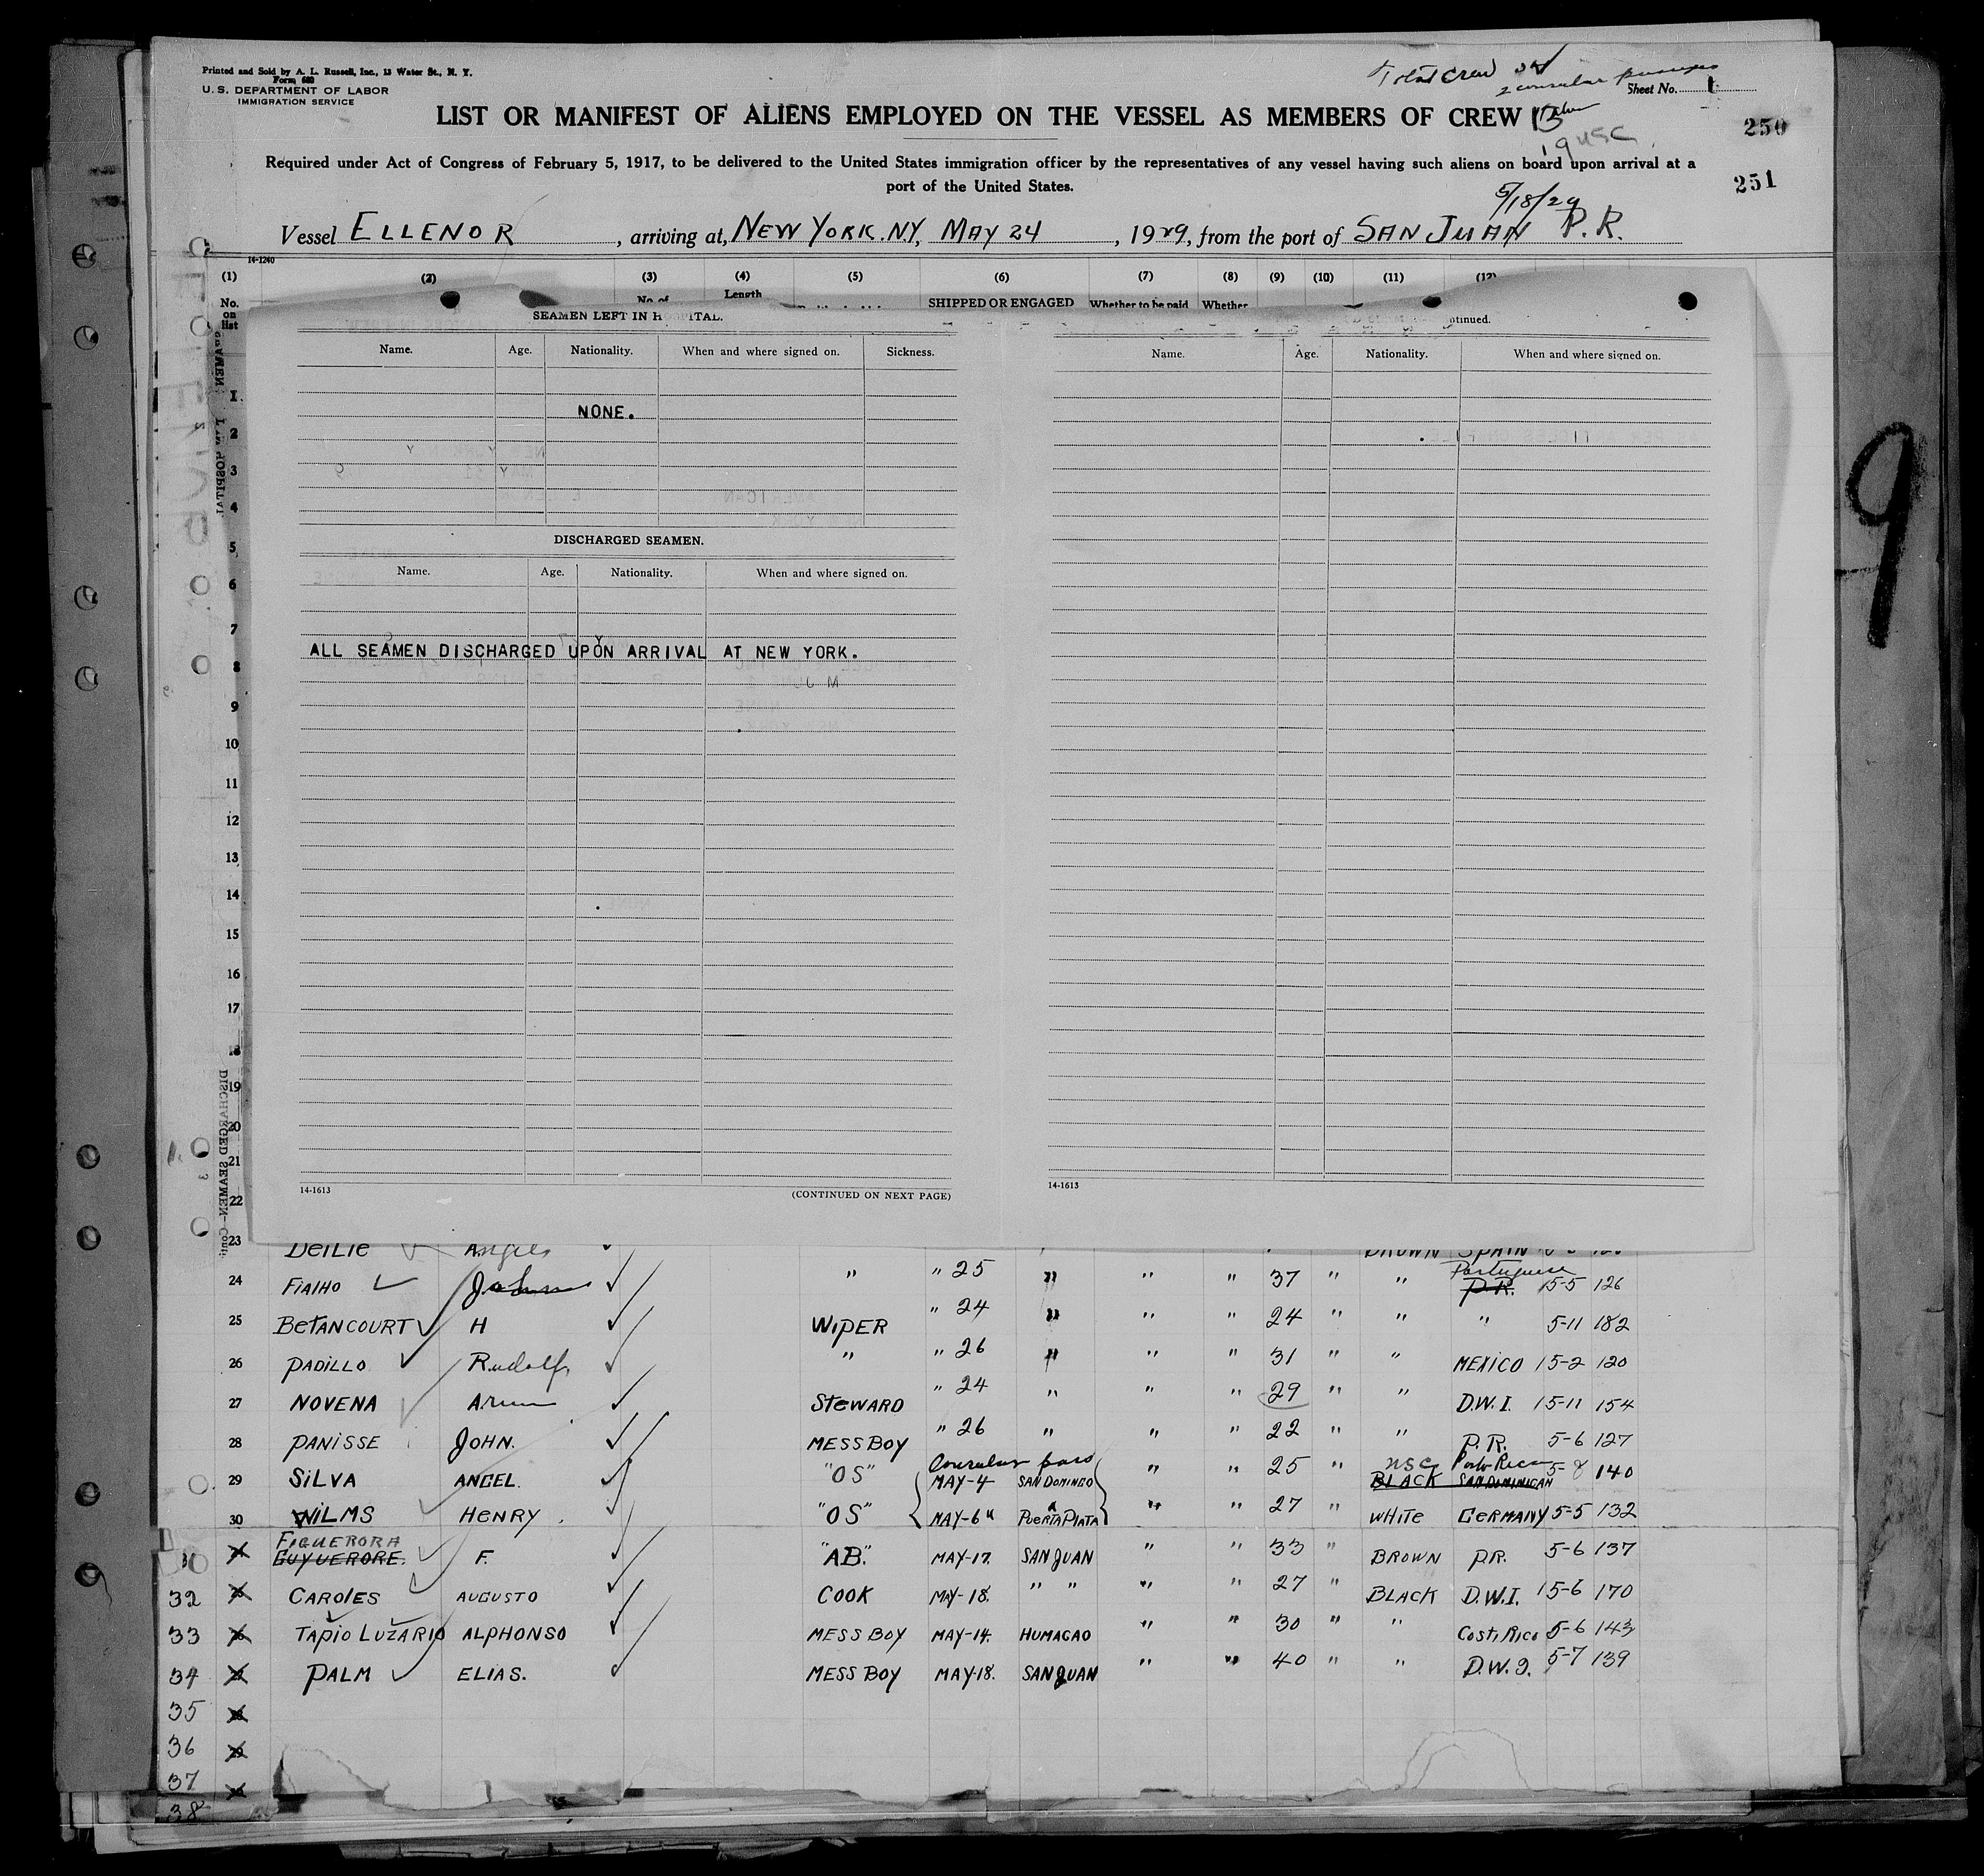 Printed and Sold by A. L. Russell, Inc., 13 Water St., N. Y.
Form 680
U. S. DEPARTMENT OF LABOR
IMMIGRATION SERVICE
Total Crew 34
2 consular passengers
Sheet No. 1
LIST OR MANIFEST OF ALIENS EMPLOYED ON THE VESSEL AS MEMBERS OF CREW
19 USC
250
Required under Act of Congress of February 5, 1917, to be delivered to the United States immigration officer by the representatives of any vessel having such aliens on board upon arrival at a
port of the United States.
251
5/18/29
Vessel ELLENOR, arriving at, NEW YORK. N.Y, MAY 24, 1929, from the port of SAN JUAN P.R.
14-1240
(1) (2) (3) (4) (5) (6) (7) (8) (9) (10) (11) (12)
No. on list No. of Length SHIPPED OR ENGAGED Whether to be paid Whether
SEAMEN LEFT IN HOSPITAL.
Name. Age. Nationality. When and where signed on. Sickness.
NONE.
DISCHARGED SEAMEN.
Name. Age. Nationality. When and where signed on.
ALL SEAMEN DISCHARGED UPON ARRIVAL AT NEW YORK.
14-1613 (CONTINUED ON NEXT PAGE)
tinued.
Name. Age. Nationality. When and where signed on.
14-1613
9
1
2
3
4
5
6
7
8
9
10
11
12
13
14
15
16
17
18
19
20
21
22
23 DEILIE Angeles BROWN SPAIN
24 FIALHO " " 25 " " " 37 " " Portuguese P.R. 5-5 126
25 BETANCOURT H WIPER " 24 " " " 24 " " " 5-11 182
26 PADILLO Rudolf " " 26 " " " 31 " " MEXICO 5-2 120
27 NOVENA STEWARD " 24 " " " 29 " " D.W.I. 5-11 154
28 PANISSE JOHN. MESS BOY " 26 " " " 22 " " P.R. 5-6 127
Consular pass USC Porto Rican
29 SILVA ANGEL. "OS" MAY-4 SAN DOMINGO " " 25 " BLACK SAN DOMINICAN 5-8 140
30 WILMS HENRY. "OS" MAY-6 PUERTA PLATA " " 27 " WHITE GERMANY 5-5 132
FIGUERORA
31 GUYUERORE. F. "AB." MAY-17. SAN JUAN " " 33 " BROWN P.R. 5-6 137
32 CAROLES AUGUSTO COOK MAY-18. " " " " 27 " BLACK D.W.I. 5-6 170
33 TAPIO LUZARIO ALPHONSO MESS BOY MAY-14. HUMACAO " " 30 " " Costi Rico 5-6 143
34 PALM ELIAS. MESS BOY MAY-18. SAN JUAN " " 40 " " D.W.I. 5-7 139
35
36
37
38